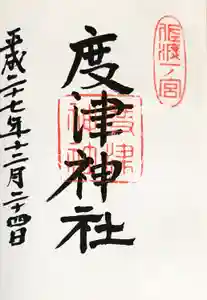 佐渡一ノ宮
度津神社
平成二十七年十二月二十四日